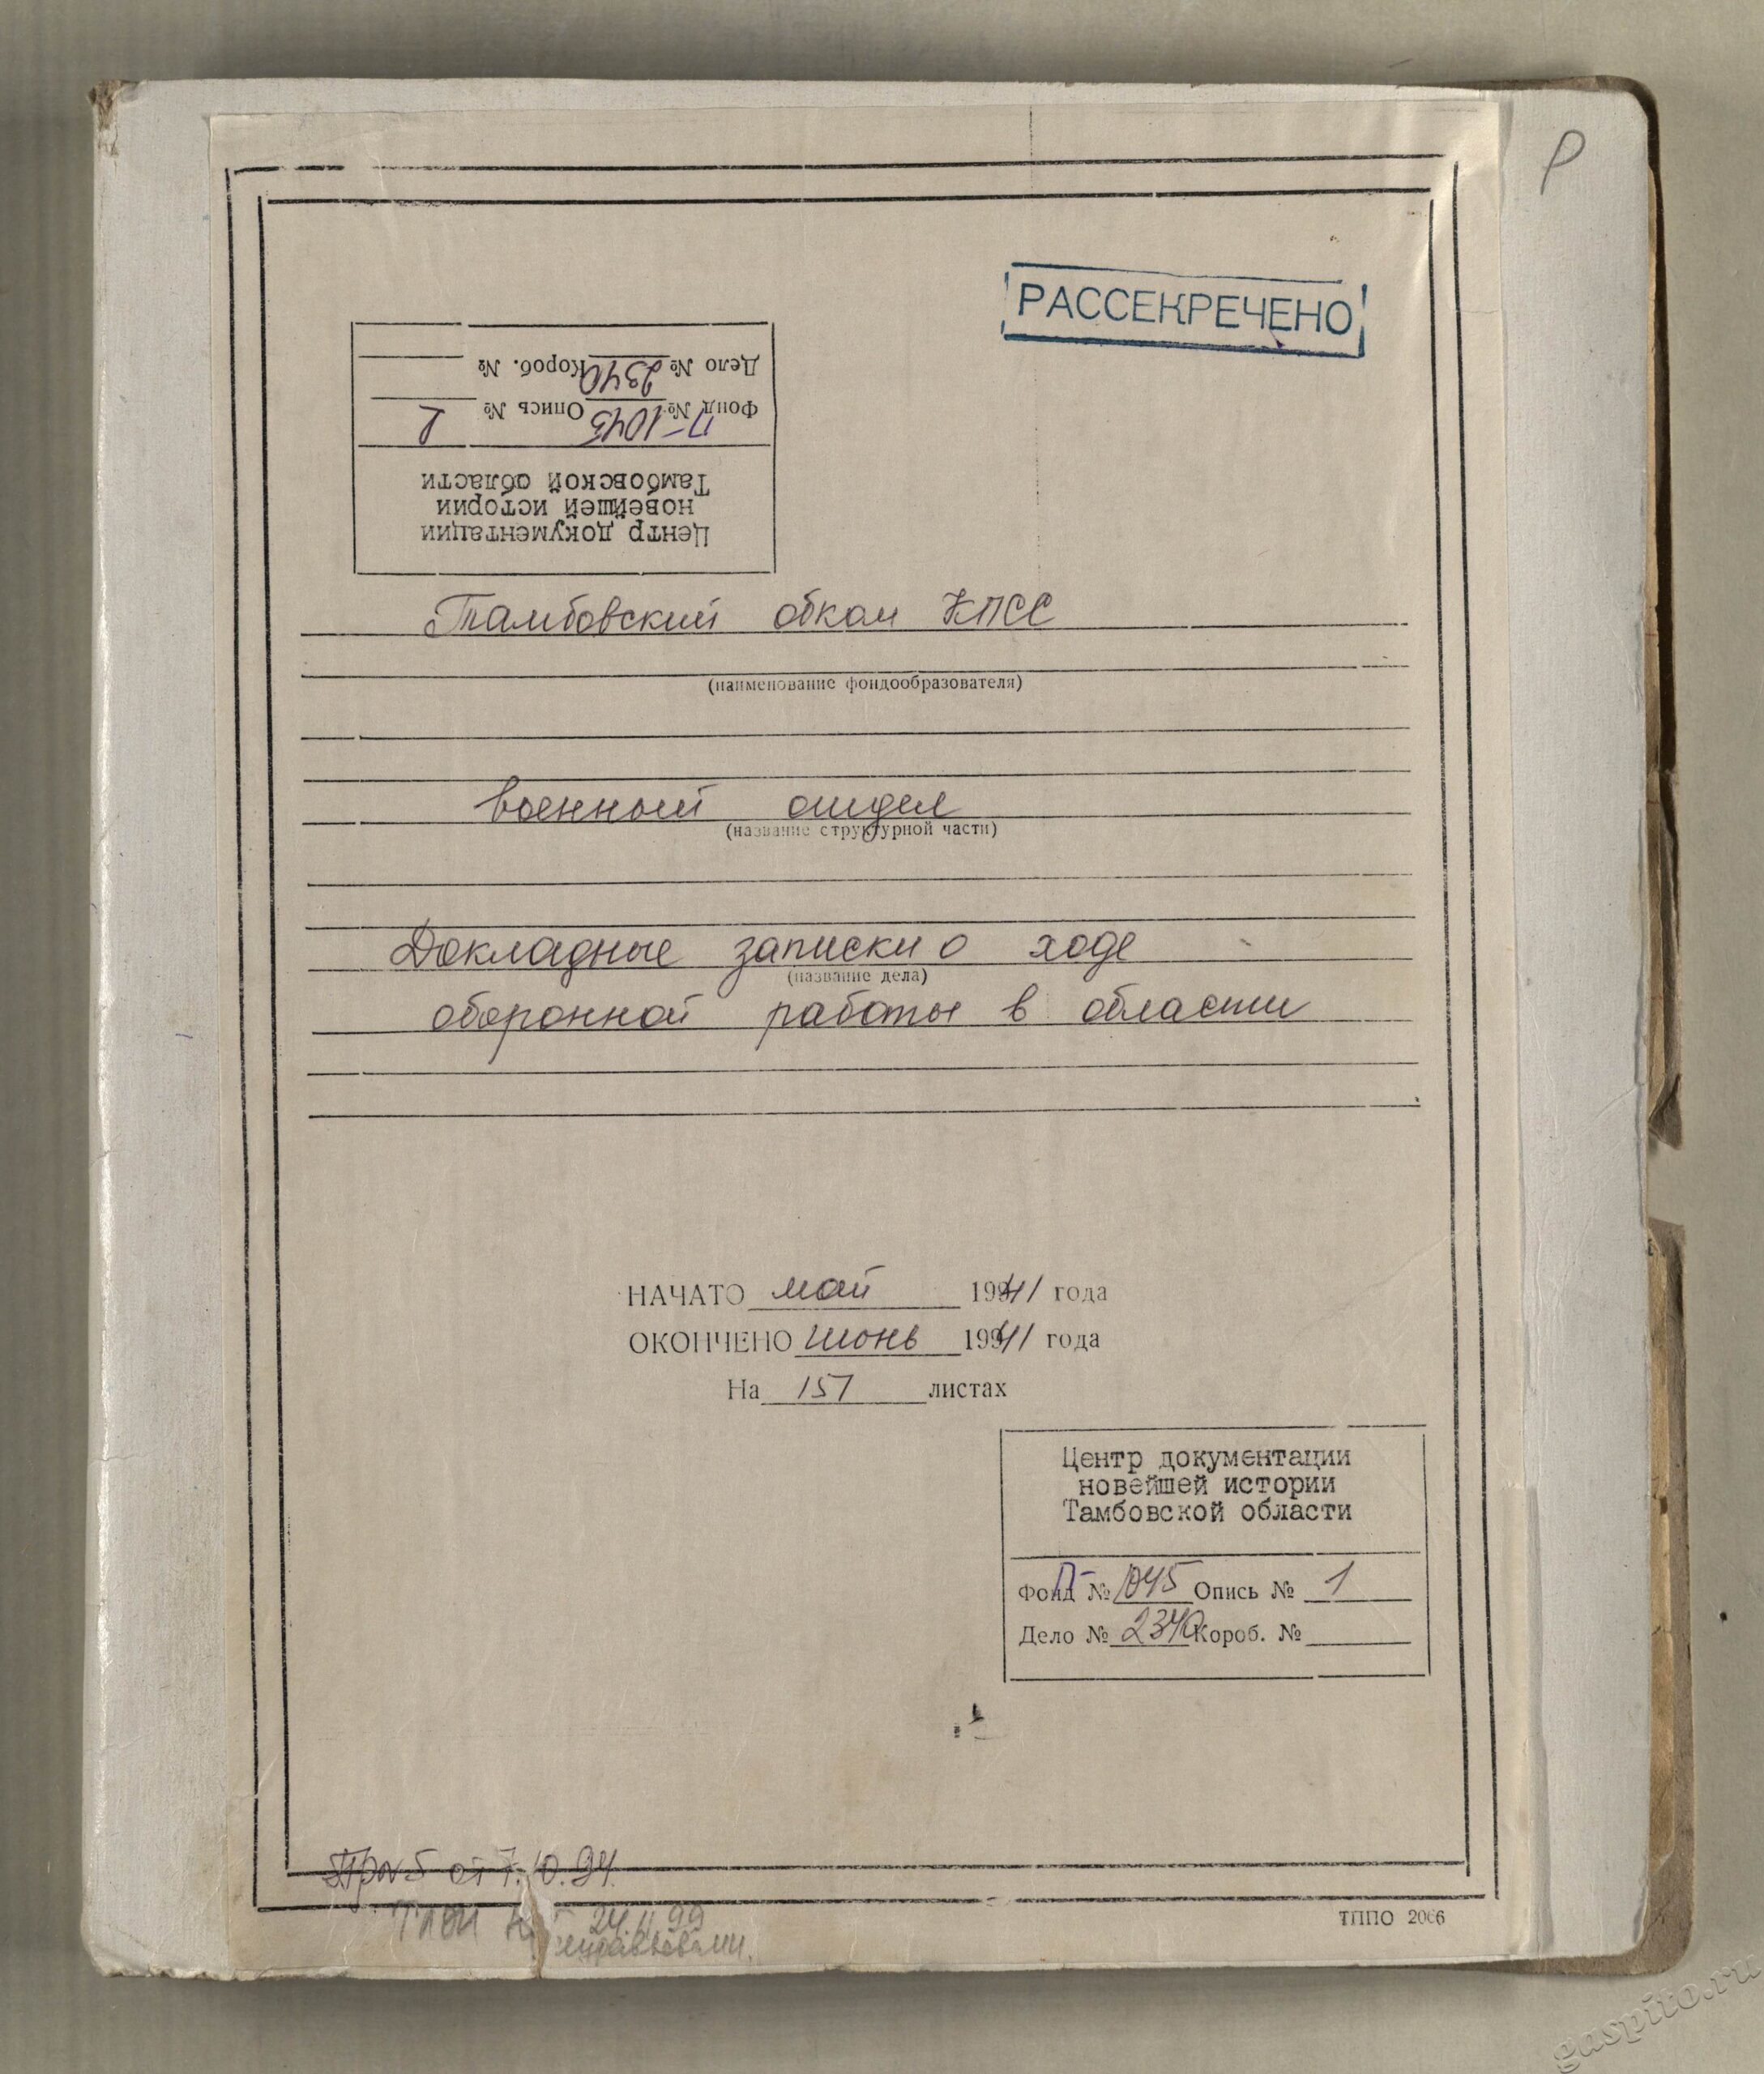 Р
РАССЕКРЕЧЕНО
Центр документации
новейшей истории
Тамбовской области
Фонд № П-1045 Опись № 1
Дело № 2340 Короб. №
Тамбовский обком КПСС
(наименование фондообразователя)
военный отдел
(название структурной части)
Докладные записки о ходе
(название дела)
оборонной работы в области
НАЧАТО май 1941 года
ОКОНЧЕНО июнь 1941 года
На 157 листах
Центр документации
новейшей истории
Тамбовской области
Фонд № П-1045 Опись № 1
Дело № 2340 Короб. №
Пр №5 от 7.10.94.
24.11.99
ТППО 2066
gaspito.ru